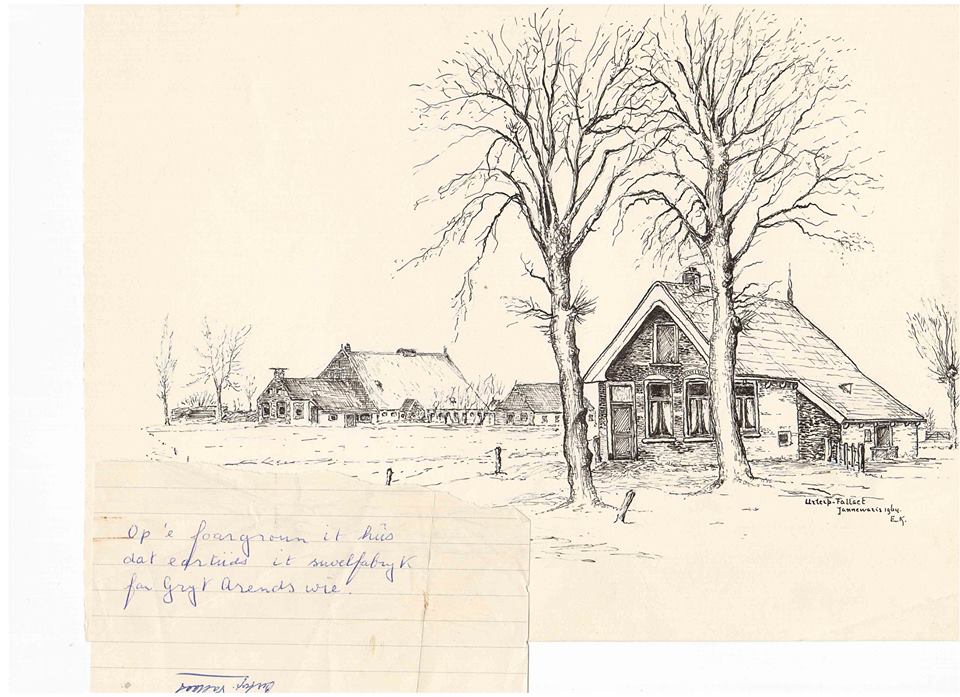 Urterp-Fallaet
Jannewaris 1964.
E.K.
Op 'e foargroun it hûs
dat eartiids it suvelfabryk
fan Gryt Arends wie.